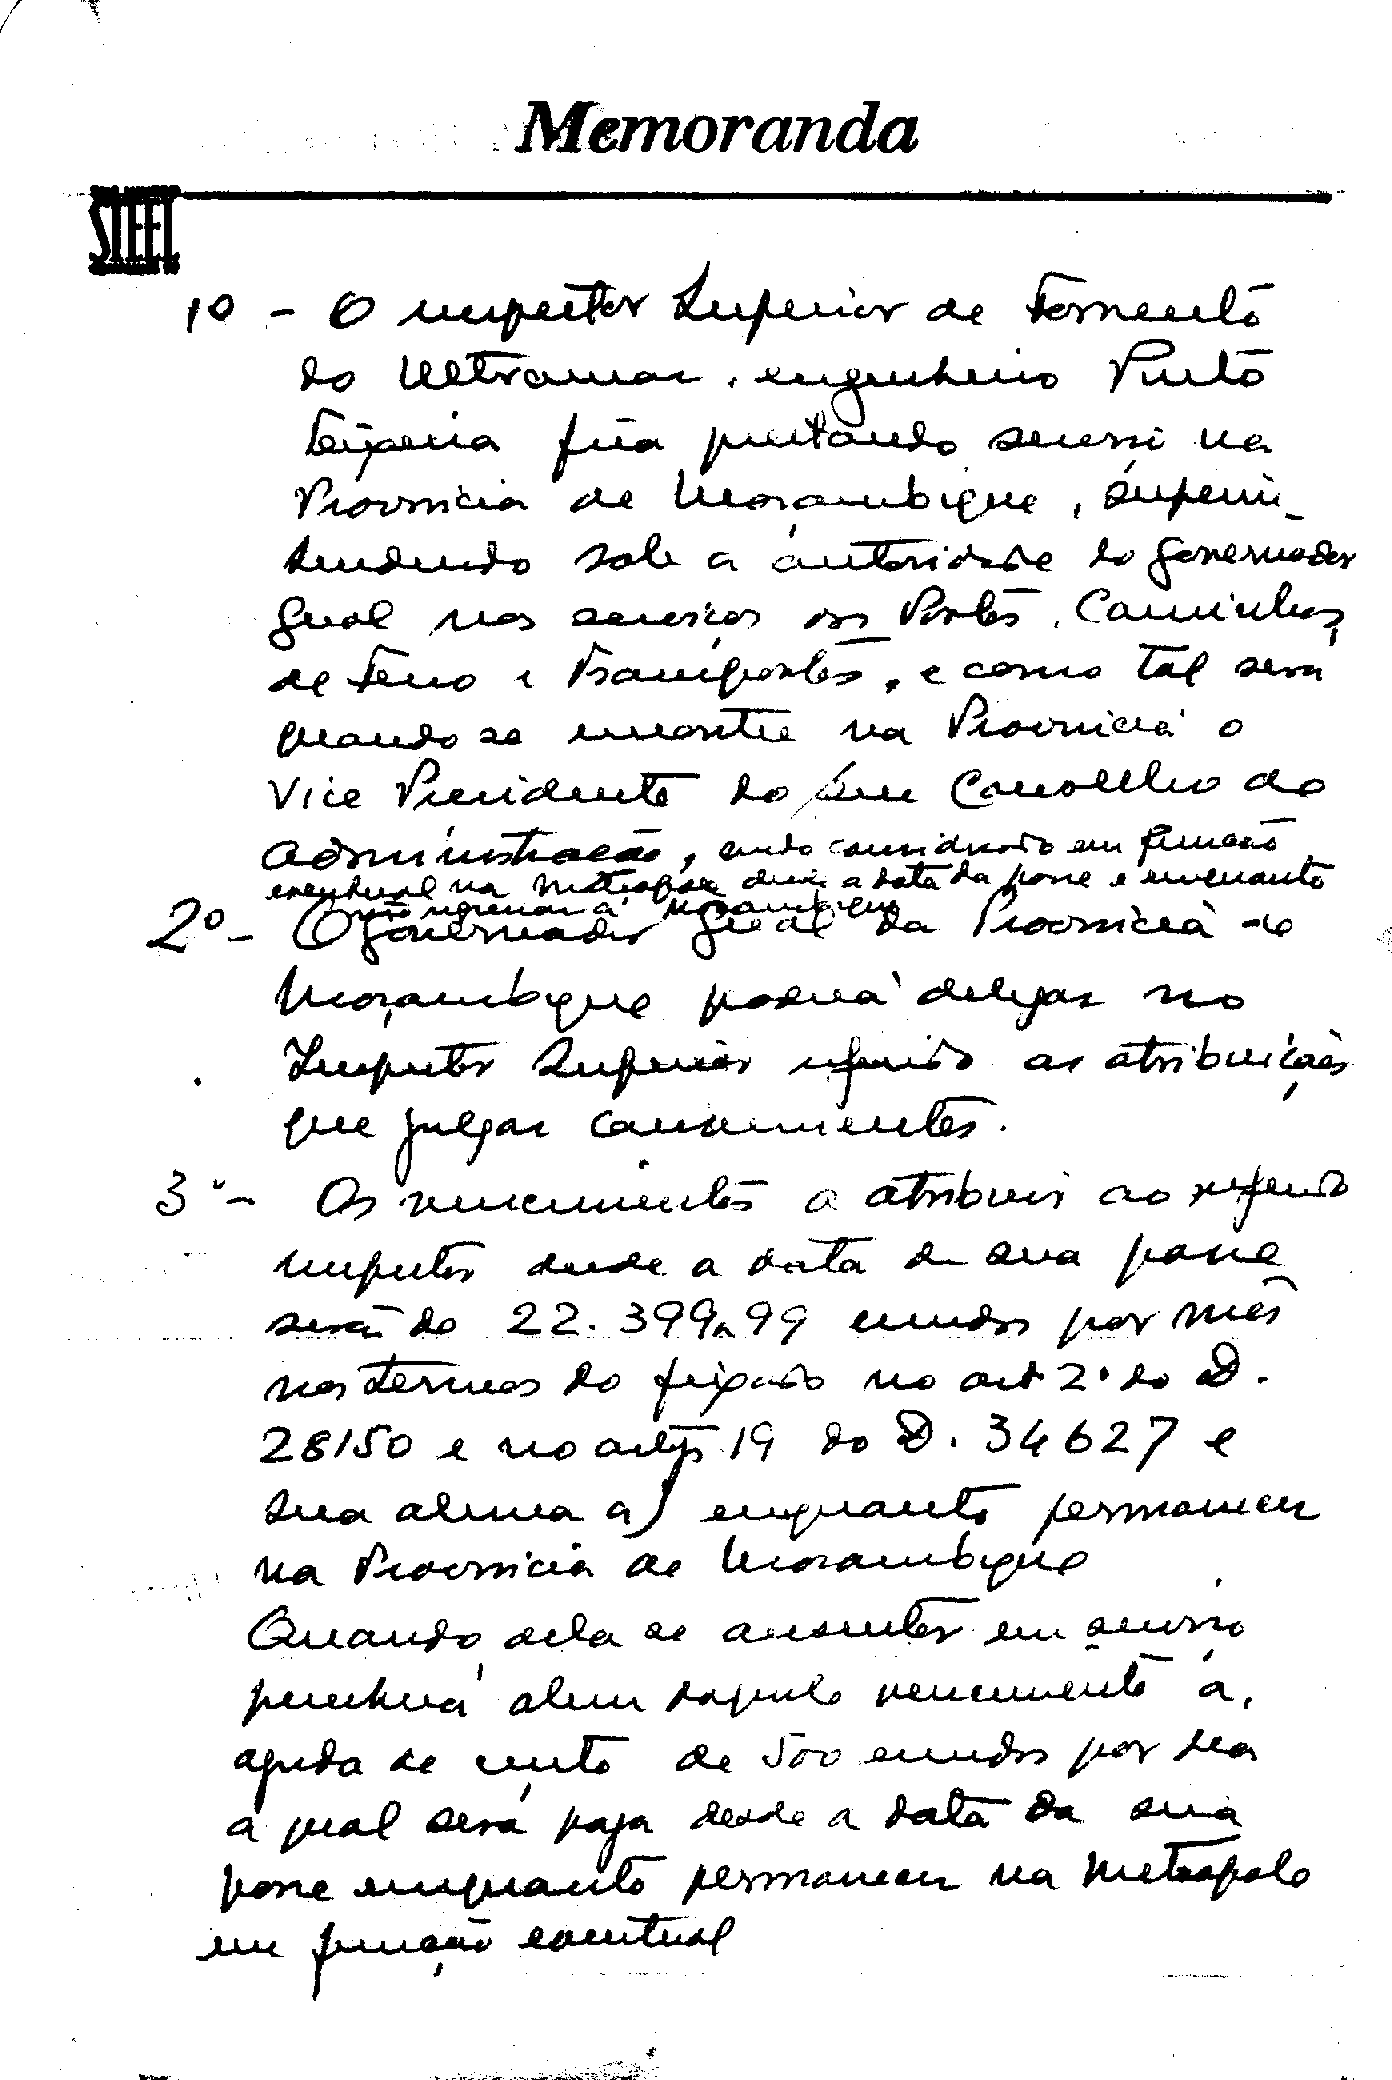 Memoranda
STEEL
1º - O inspector Superior de Fomento
do Ultramar, engenheiro Pinto
Teixeira fica prestando serviço na
Provincia de Moçambique, superin-
tendendo sob a autoridade do governador
geral nos serviços dos Portos, Caminhos
de Ferro e Transportes, e como tal será
quando se encontre na Provincia o
Vice Presidente do seu Conselho de
administração, sendo considerado em função
eventual na metropole desde a data da posse e enquanto
não regressar a Moçambique
2º - O governador geral da Provincia de
Moçambique poderá delegar no
Inspector Superior referido as atribuições
que julgar convenientes.
3º - Os vencimentos a atribuir ao referido
inspector desde a data de sua posse
será de 22.399,99 escudos por mês
nos termos do fixado no art 2º do D.
28150 e no artigo 19 do D. 34627 e
sua alinea a) enquanto permanecer
na Provincia de Moçambique
Quando dela se ausentar em serviço
perceberá alem daquele vencimento a,
ajuda de custo de 500 escudos por dia
a qual será paga desde a data da sua
posse enquanto permanecer na metropole
em função eventual